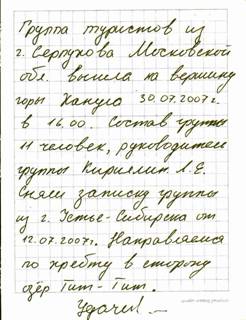 Группа туристов из
г. Серпухова Московской
обл. вышла на вершину
горы Хануло 30.07.2007г.
в 16.00. Состав группы
11 человек, руководитель
группы Кириллин Л.Е.
Сняли записку группы
из г. Устье-Сибирска от
12.07.2007г. Направляемся
по хребту в сторону
озёр Гит-Гит.
Удачи!